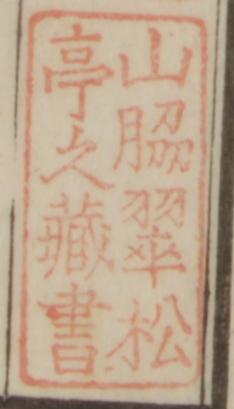 山脇翠松
亭之藏書